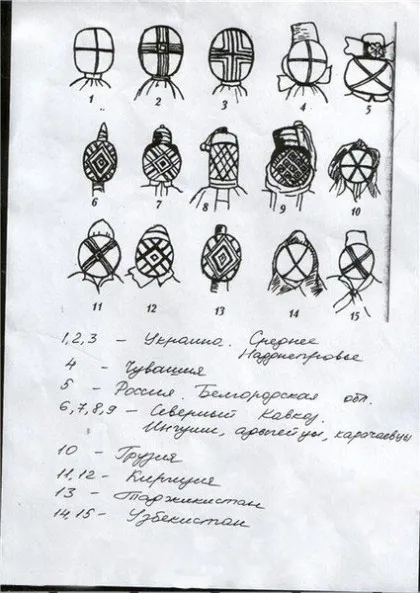 1 2 3 4 5
6 7 8 9 10
11 12 13 14 15
1,2,3 - Украина. Среднее
Надднепровье
4 - Чувашия
5 - Россия. Белгородская обл.
6,7,8,9 - Северный Кавказ.
Ингуши, адыгейцы, карачаевцы
10 - Грузия
11,12 - Киргизия
13 - Таджикистан
14,15 - Узбекистан